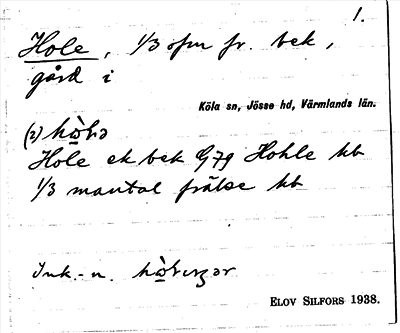 1.
Hole, 1/3 ofm fr. bek,
gård i
Köla sn, Jösse hd, Värmlands län.
(2)
Hole ek bek G79 Hohle kb
1/3 mantal frälse kb
Ink.-n.
ELOV SILFORS 1938.